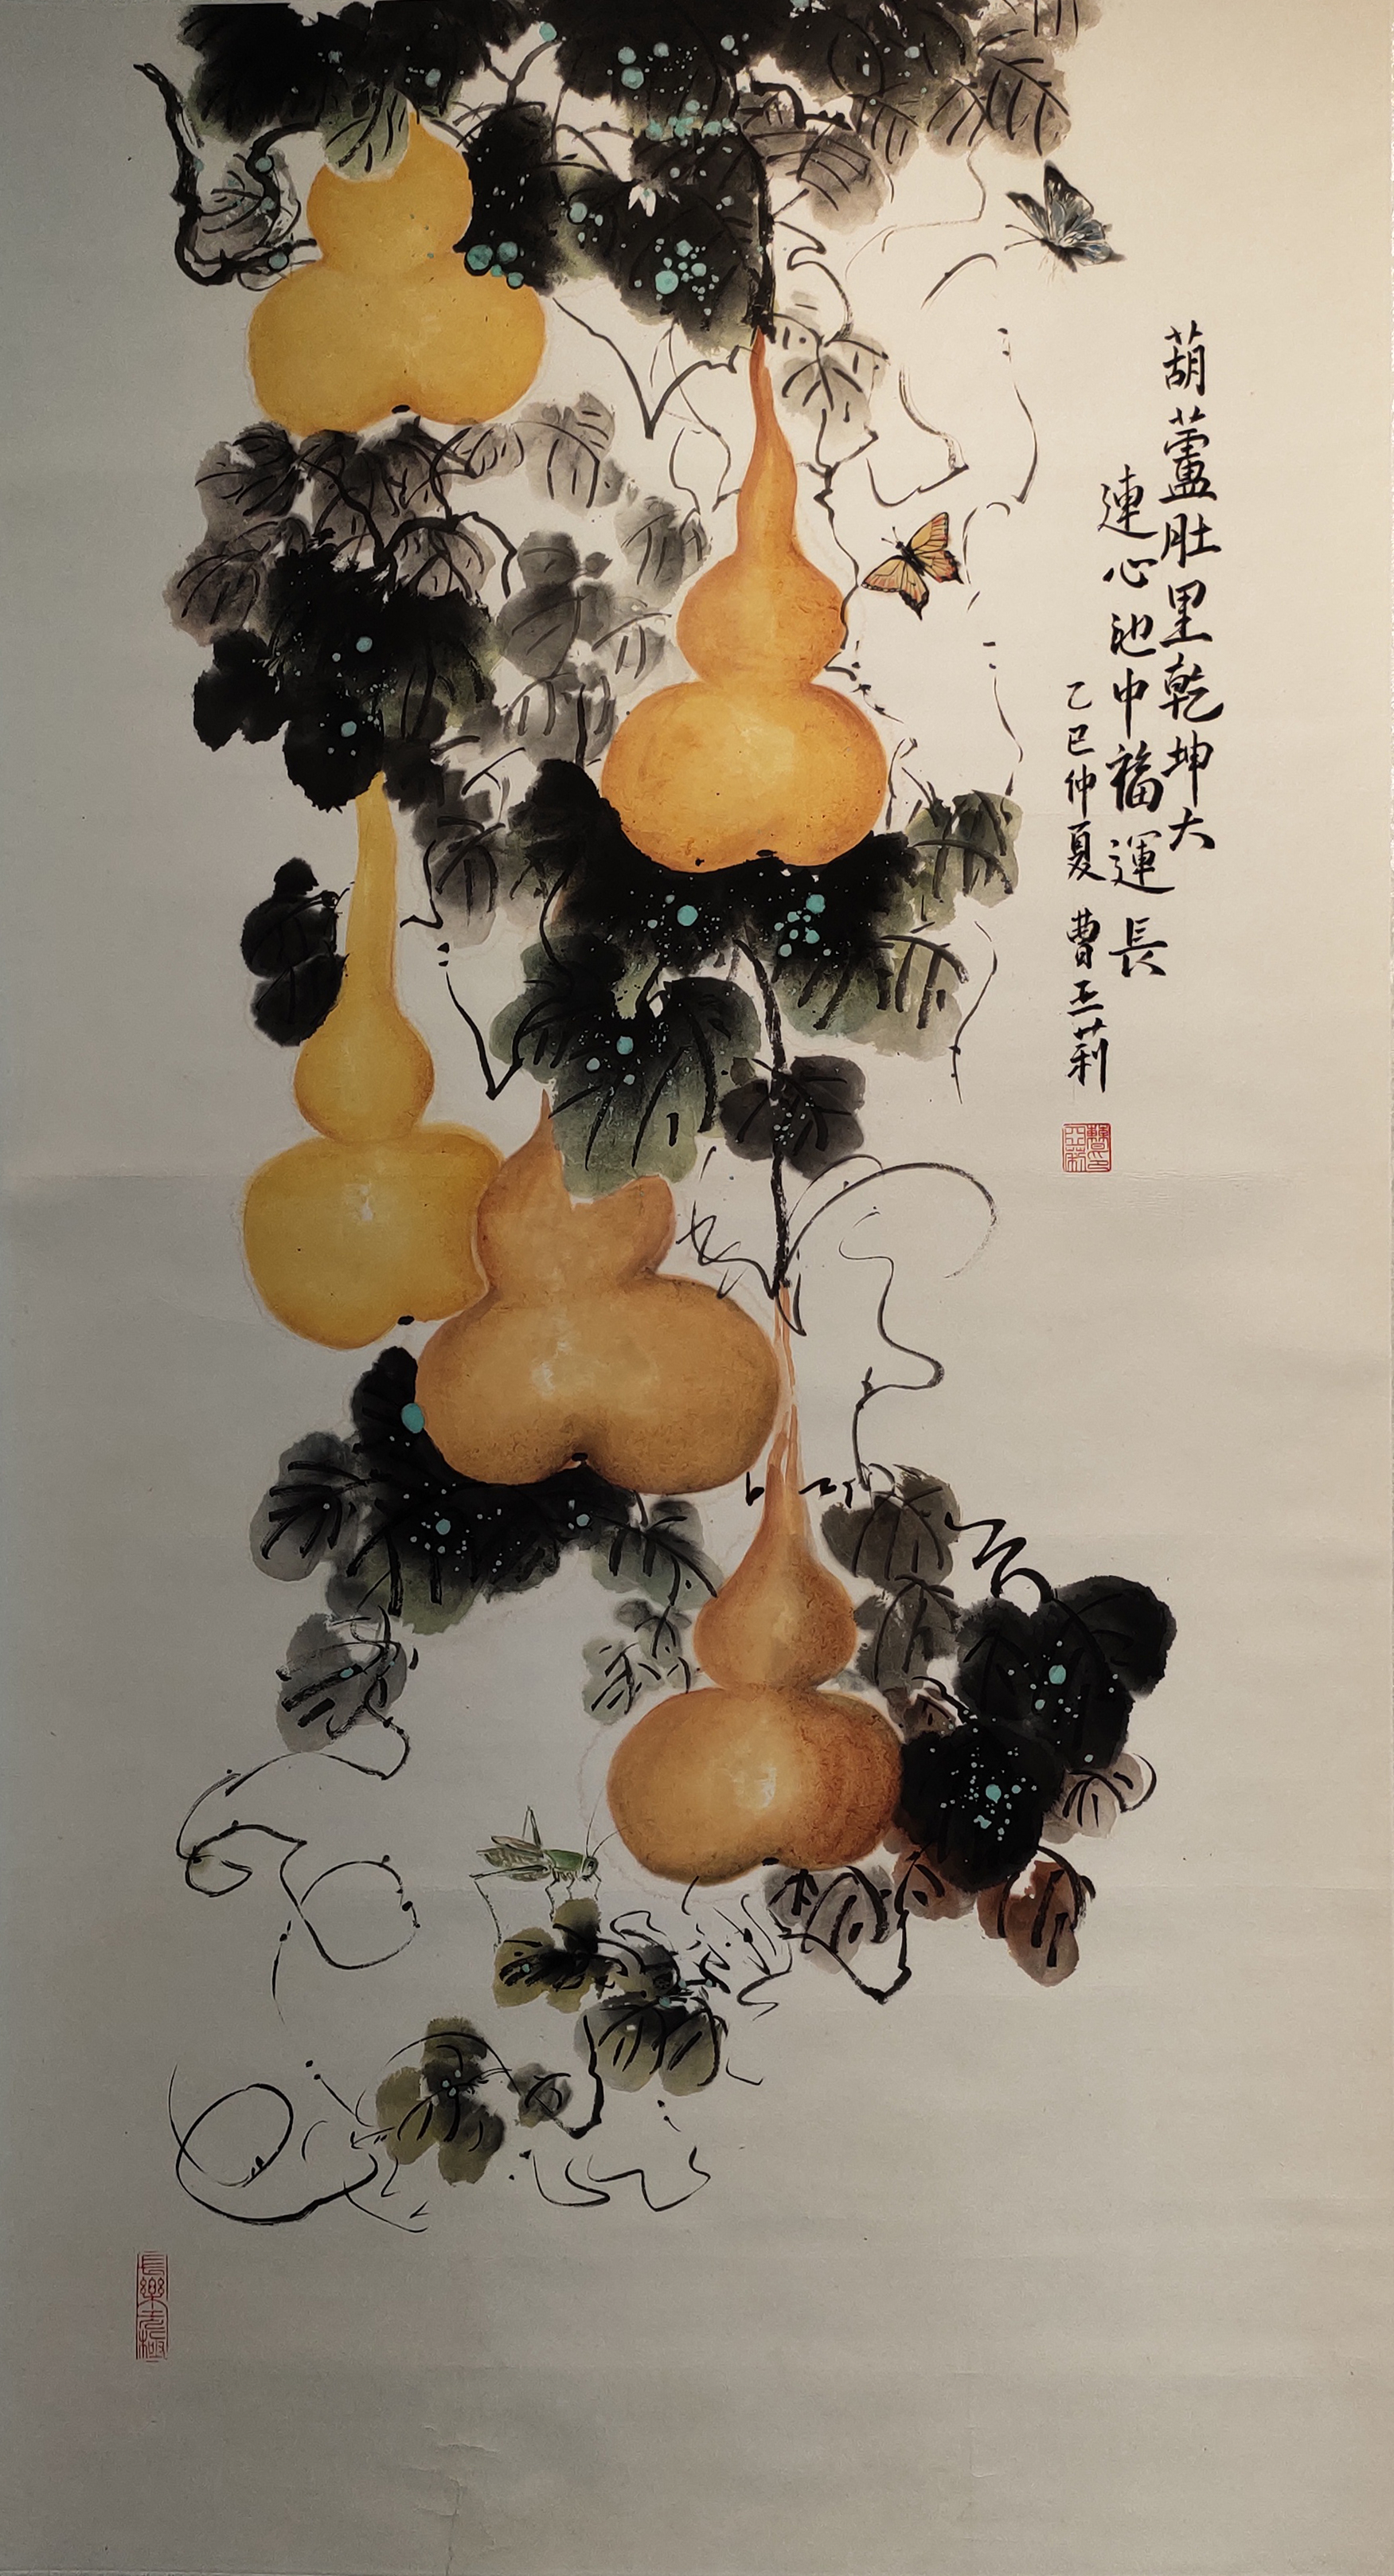 葫蘆肚里乾坤大
連心池中福運長
乙巳仲夏 曹亚莉
長樂无極